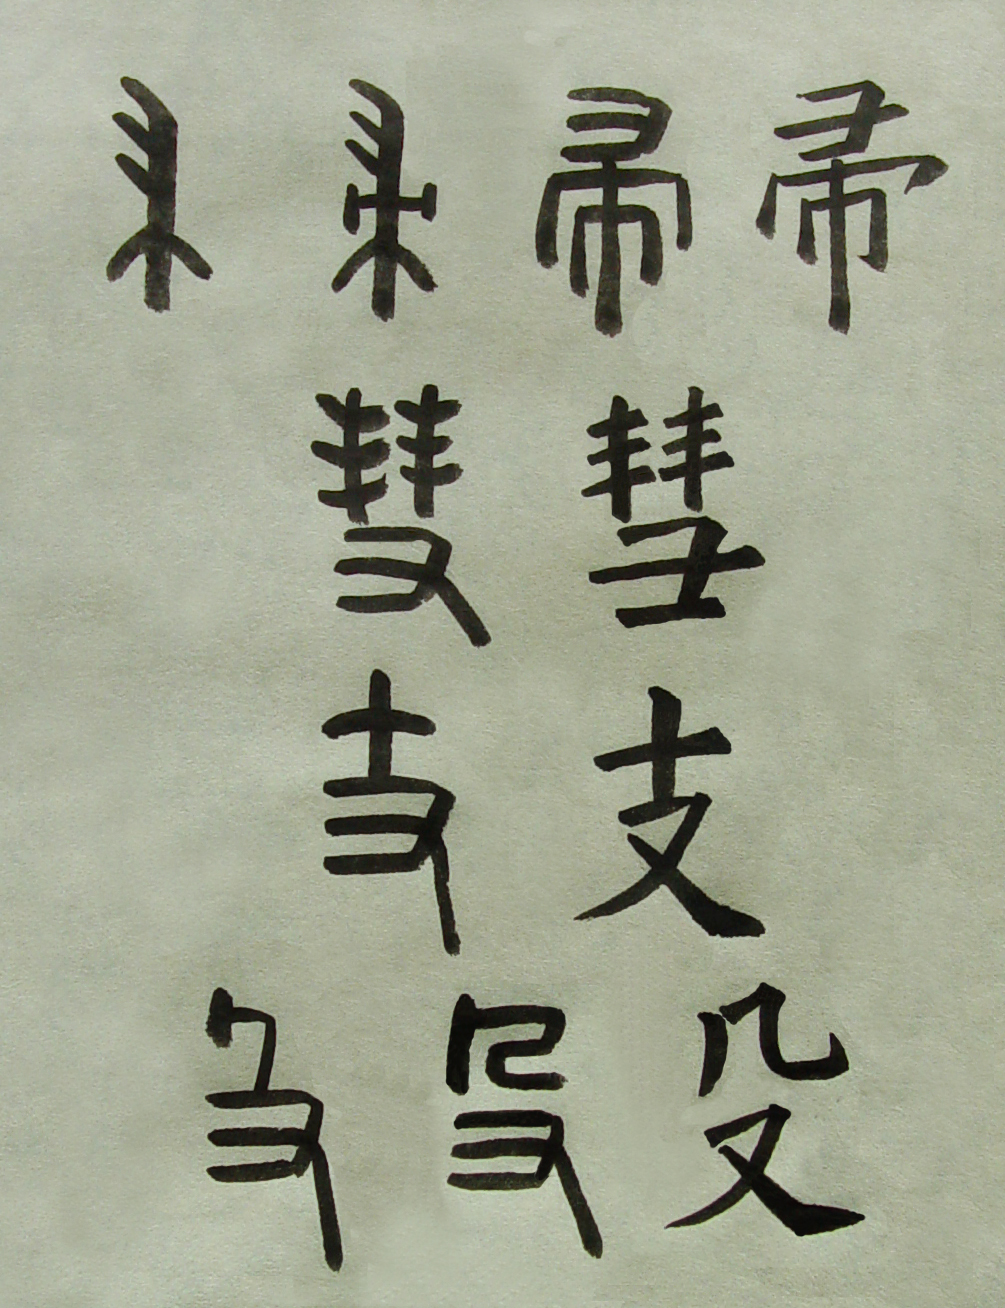 帚 帚 帚 帚
彗 彗
支 支
殳 殳 殳